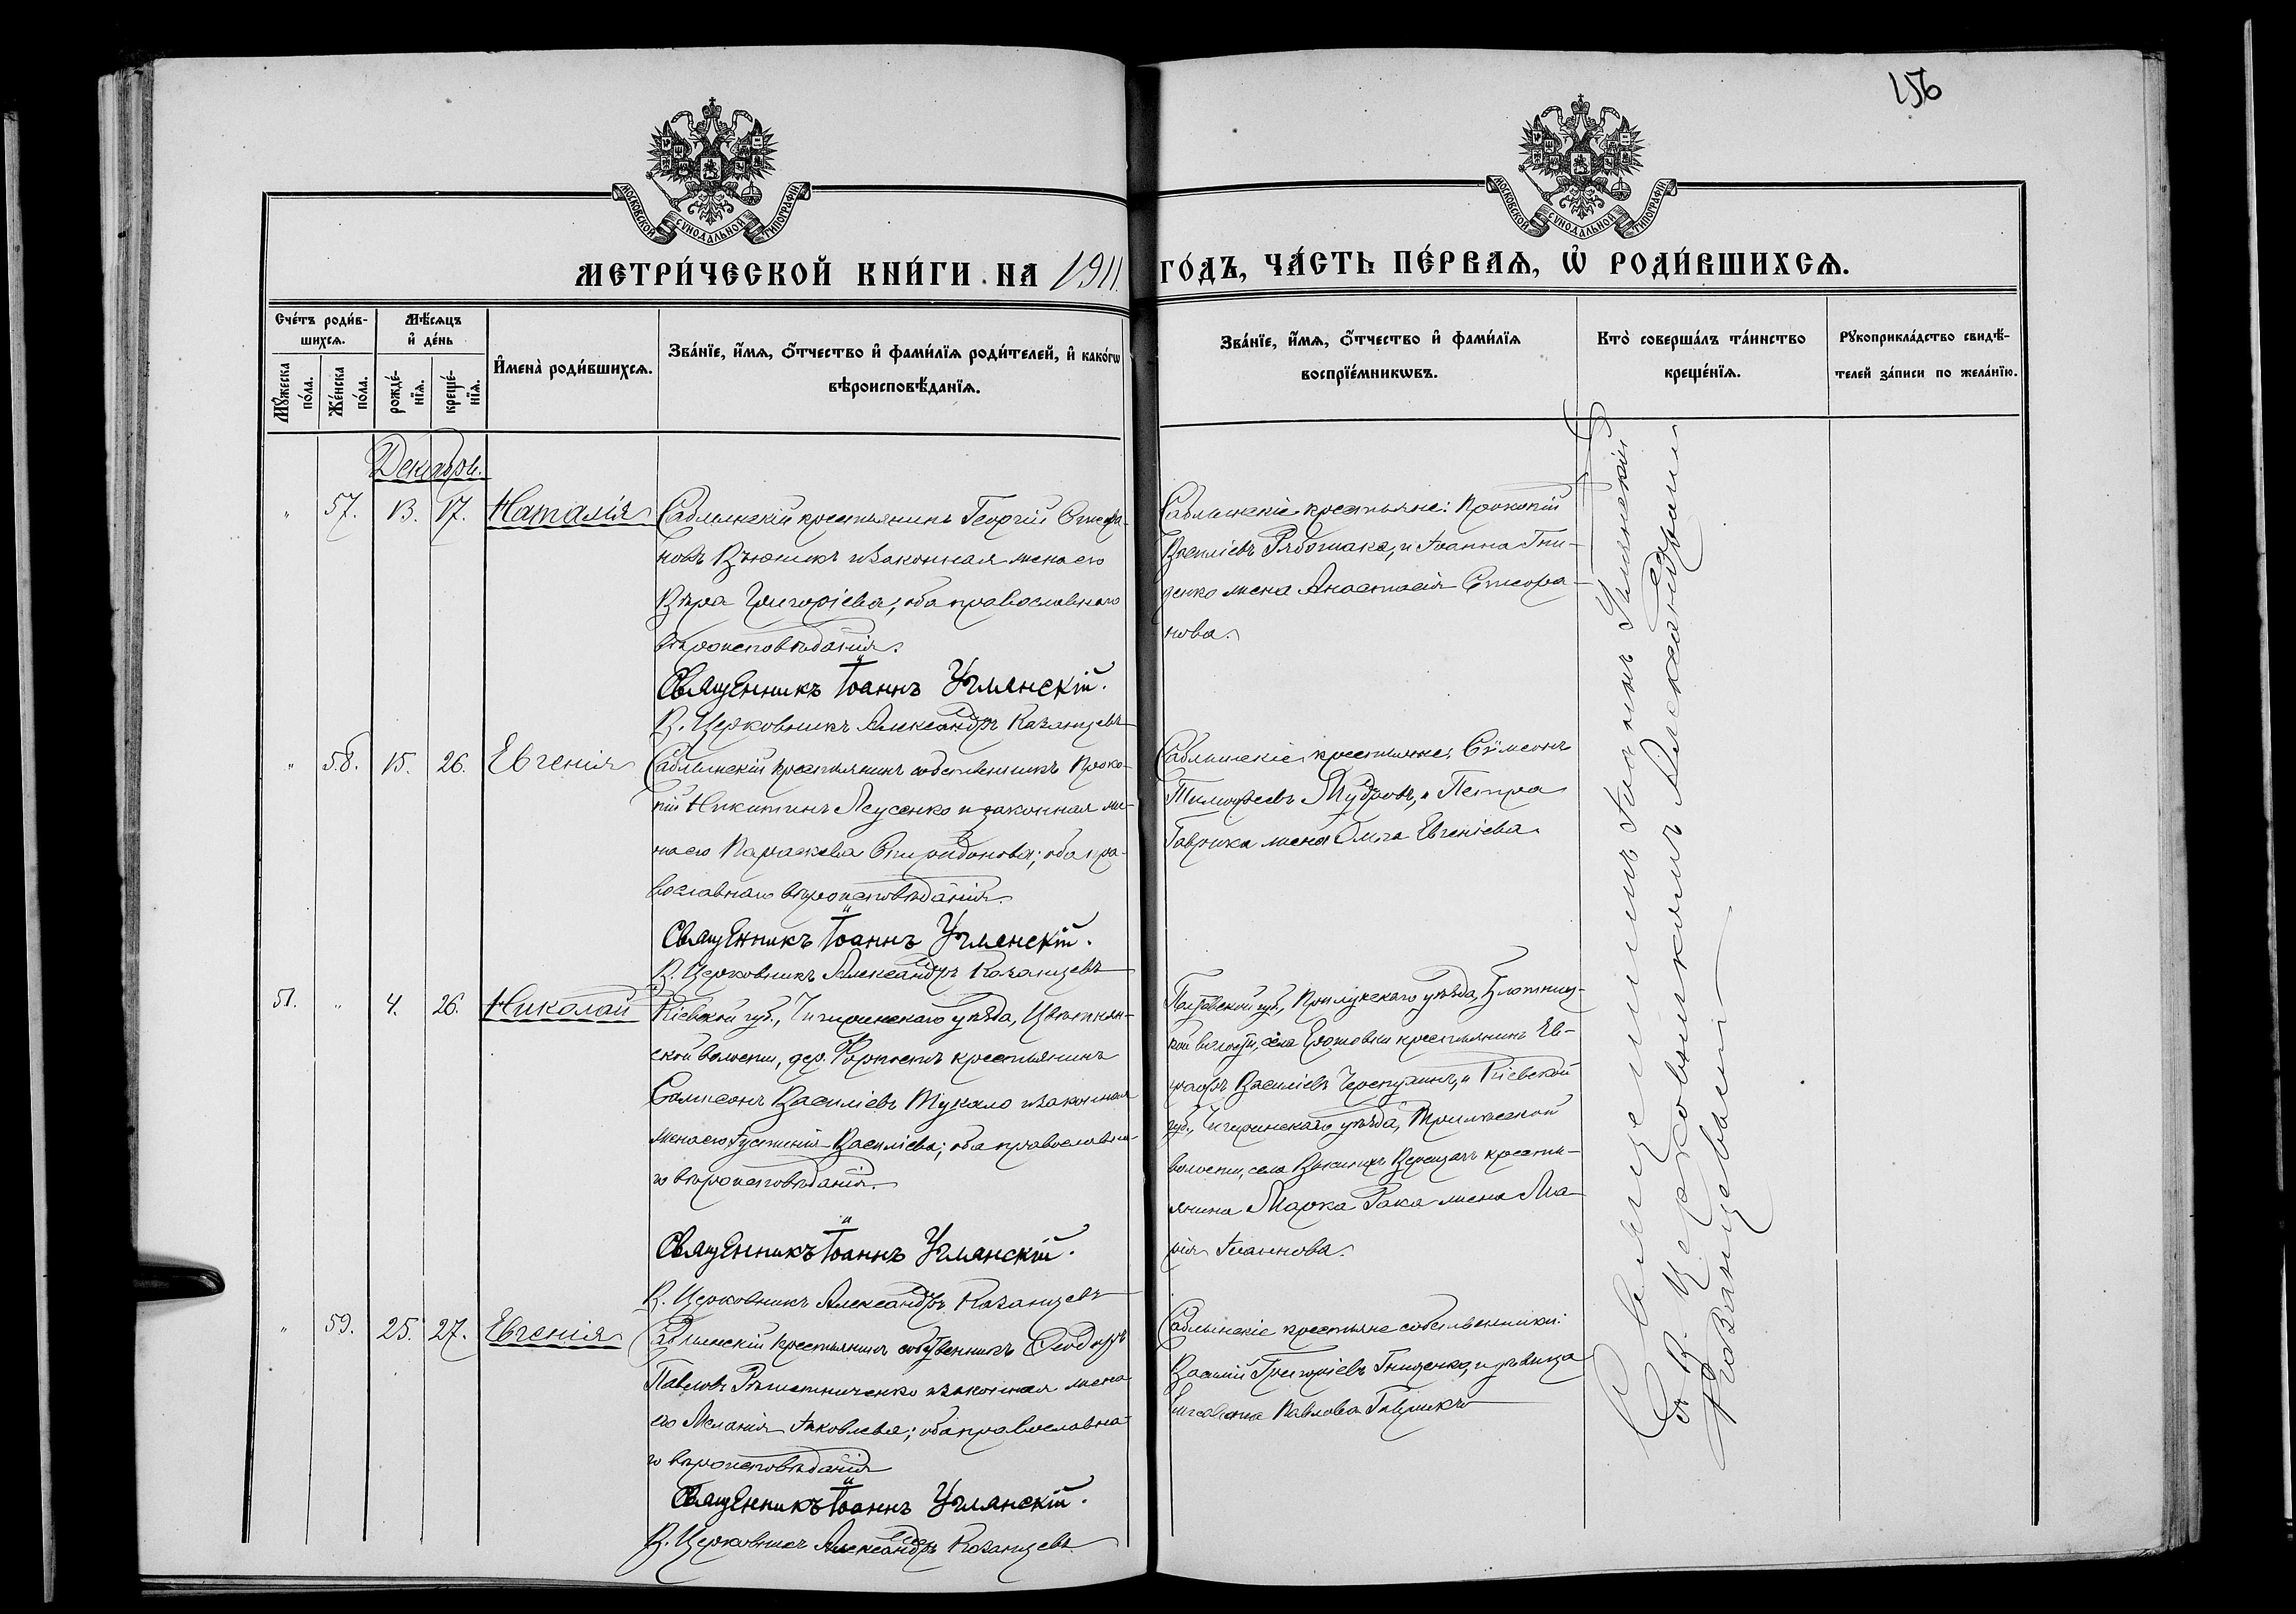 156
МОСКОВСКОЙ СѴНОДАЛЬНОЙ ТИПОГРАФІИ
МОСКОВСКОЙ СѴНОДАЛЬНОЙ ТИПОГРАФІИ
МЕТРИ́ЧЕСКОЙ КНИ́ГИ НА 1911 ГО́ДЪ, ЧА́СТЬ ПЕ́РВАѦ, Ѡ҆ РОДИ́ВШИХСѦ.
Сче́тъ роди́в-
шихсѧ.
Мꙋ́жеска по́ла.
Же́нска по́ла.
Мѣ́сѧцъ
и҆ де́нь
рожде́-
нїѧ.
креще́-
нїѧ.
И҆мена̀ роди́вшихсѧ.
Зва́нїе, и҆́мѧ, ѻ҆́тчество и҆ фами́лїѧ роди́телей, и҆ како́гѡ
вѣроисповѣ́данїѧ.
Зва́нїе, и҆́мѧ, ѻ҆́тчество и҆ фами́лїѧ
воспрїе́мникѡвъ.
Кто̀ соверша́лъ та́инство
креще́нїѧ.
Рꙋкоприкла́дство свидѣ́-
телей за́писи по жела́нїю.
Декабрь.
" 57. 13. 17. Наталія
Саблинскій крестьянинъ Георгій Стефа-
новъ Вьюникъ и законная жена его
Вѣра Григоріева; оба православнаго
вѣроисповѣданія.
Священникъ Іоаннъ Углянскій.
В. Церковникъ Александръ Казанцевъ
Саблинскіе крестьяне: Прокопій
Василіевъ Рябошапка, и Іоанна Гни-
денко жена Анастасія Стефа-
нова.
" 58. 15. 26. Евгенія
Саблинскій крестьянинъ собственникъ Проко-
пій Никитинъ Ясусенко и законная же-
на его Параскева Спиридонова; оба пра-
вославнаго вѣроисповѣданія.
Священникъ Іоаннъ Углянскій.
В. Церковникъ Александръ Казанцевъ
Саблинскіе крестьяне: Сѵмеонъ
Тимофеевъ Мудровъ, и Петра
Гаврика жена Ольга Евгеніева.
51. " 4. 26. Николай
Кіевской губ., Чигиринскаго уѣзда, Цвѣтнян-
ской волости, дер. Форпостъ крестьянинъ
Сампсонъ Василіевъ Тукало и законная
жена его Іустинія Василіева; оба православна-
го вѣроисповѣданія.
Священникъ Іоаннъ Углянскій.
В. Церковникъ Александръ Казанцевъ
Полтавской губ., Прилукскаго уѣзда,
кой волости, села крестьянинъ Ев-
графъ Василіевъ и Кіевской
губ., Чигиринскаго уѣзда, Трилѣсской
волости, села крестья-
янина Марка Рака жена Ма-
рія Іоаннова.
" 59. 25. 27. Евгенія
Саблинскій крестьянинъ собственникъ Ѳеодоръ
Павловъ Рѣшетниченко и законная жена
его Меланія Іаковлева; оба православна-
го вѣроисповѣданія
Священникъ Іоаннъ Углянскій.
В. Церковникъ Александръ Казанцевъ
Саблинскіе крестьяне собственники:
Василій Григоріевъ Гниденко, и дѣвица
Павлова Гаврикъ
Священникъ Іоаннъ Углянскій
съ В. Церковникомъ Александромъ
Казанцевымъ